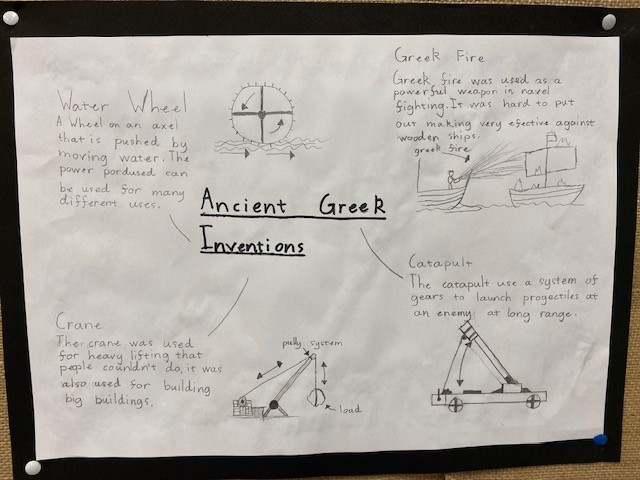 Ancient Greek
Inventions
Water Wheel
A Wheel on an axel
that is pushed by
moving water. The
power pordused can
be used for many
different uses.
Greek Fire
Greek fire was used as a
powerful weapon in navel
fighting. It was hard to put
out making very efective against
wooden ships.
greek fire
Crane
The crane was used
for heavy lifting that
people couldn't do, it was
also used for building
big buildings.
pully system
load
Catapult
The catapult use a system of
gears to launch progectiles at
an enemy at long range.